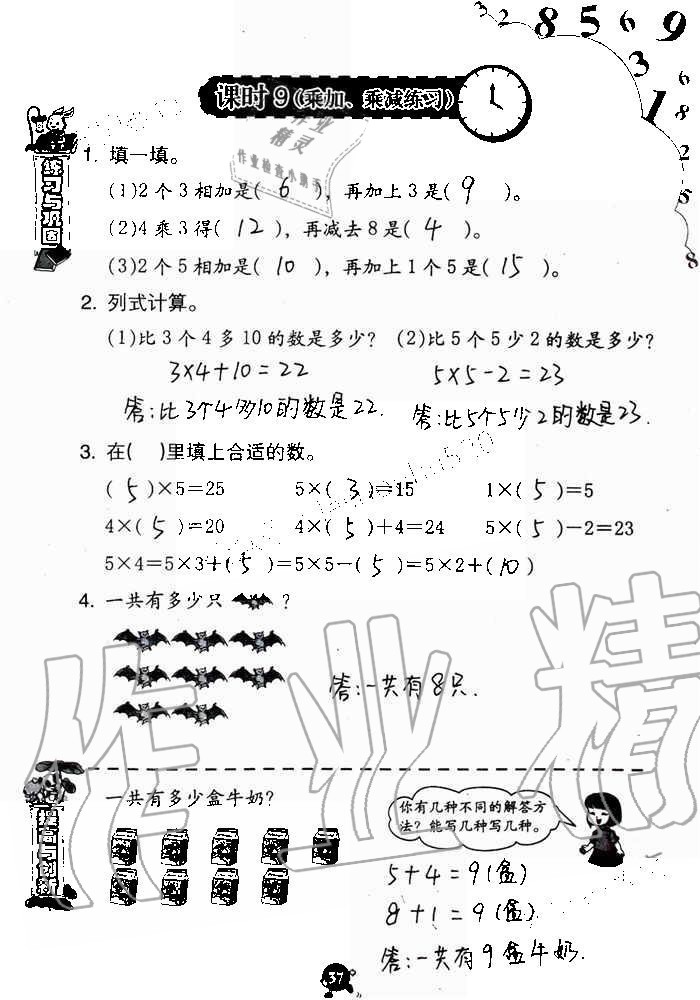 3 2 8 5 6 9
3 1 6 8 2 5 8
课时9(乘加、乘减练习)
练习与巩固
1. 填一填。
(1)2个3相加是( 6 )，再加上3是( 9 )。
(2)4乘3得( 12 )，再减去8是( 4 )。
(3)2个5相加是( 10 )，再加上1个5是( 15 )。
2. 列式计算。
(1)比3个4多10的数是多少? (2)比5个5少2的数是多少?
3×4+10=22 5×5-2=23
答:比3个4多10的数是22. 答:比5个5少2的数是23.
3. 在( )里填上合适的数。
( 5 )×5=25 5×( 3 )=15 1×( 5 )=5
4×( 5 )=20 4×( 5 )+4=24 5×( 5 )-2=23
5×4=5×3+( 5 )=5×5-( 5 )=5×2+( 10 )
4. 一共有多少只 ?
答:一共有8只.
作业精
提高与创新
一共有多少盒牛奶?
你有几种不同的解答方
法? 能写几种写几种。
5+4=9(盒)
8+1=9(盒)
答:一共有9盒牛奶.
37